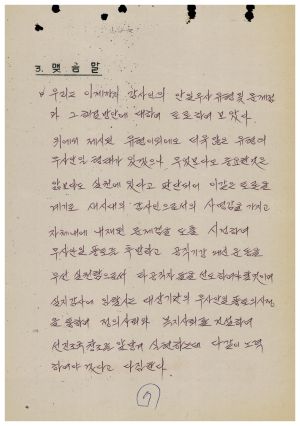 3. 맺음말
우리는 이제까지 감사인의 안일무사 유형 및 문제점
과 그 해결방안에 대하여 토론하여 보았다.
위에서 제시된 유형 이외에도 더욱 많은 유형의
무사안일 형태가 있겠으나 무엇보다도 중요한 것은
앎보다도 실천에 있다고 판단되어 이같은 토론을
계기로 새시대의 감사인으로서의 사명감을 가지고
자체내에 내재된 문제점을 도출 시정하여
무사안일 풍토를 추방하고 공직기강 쇄신 운동을
우선 실천함으로서 타 공직자들을 선도하여야 할 것이며
실지감사에 임할시는 대상기관의 무사안일 풍토의 시정
을 통하여 정의사회와 복지사회를 건설하여
선진조국 창조를 앞당겨 실현하는데 다같이 노력
하여야 겠다고 다짐한다.